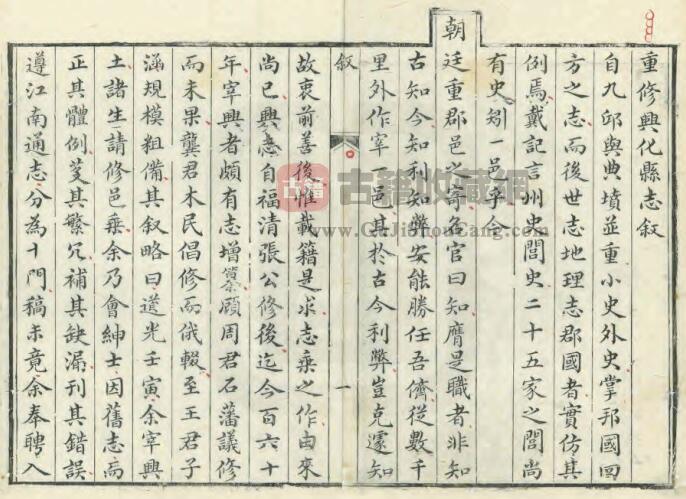 重修興化縣志叙
自九邱與典墳並重小史外史掌邦國四
方之志而後世志地理志郡國者實仿其
例焉戴記言州史閭史二十五家之閭尚
有史矧一邑乎今
朝廷重郡邑之寄名官曰知膺是職者非知
古知今知利知弊安能勝任吾儕從數千
里外作宰一邑其於古今利弊豈克遽知
叙
一
故衷前善後惟載籍是求志乘之作由來
尚已興志自福清張公修後迄今百六十
年宰興者頗有志增纂顧周君石藩議修
而未果龔君木民倡修而俄輟至王君子
涵規模粗備其叙略曰道光壬寅余宰興
土諸生請修邑乘余乃會紳士因舊志而
正其體例芟其繁冗補其缺漏刊其錯誤
遵江南通志分為十門稿未竟余奉聘入
古籍
古籍收藏網
GuJiShouCang.com